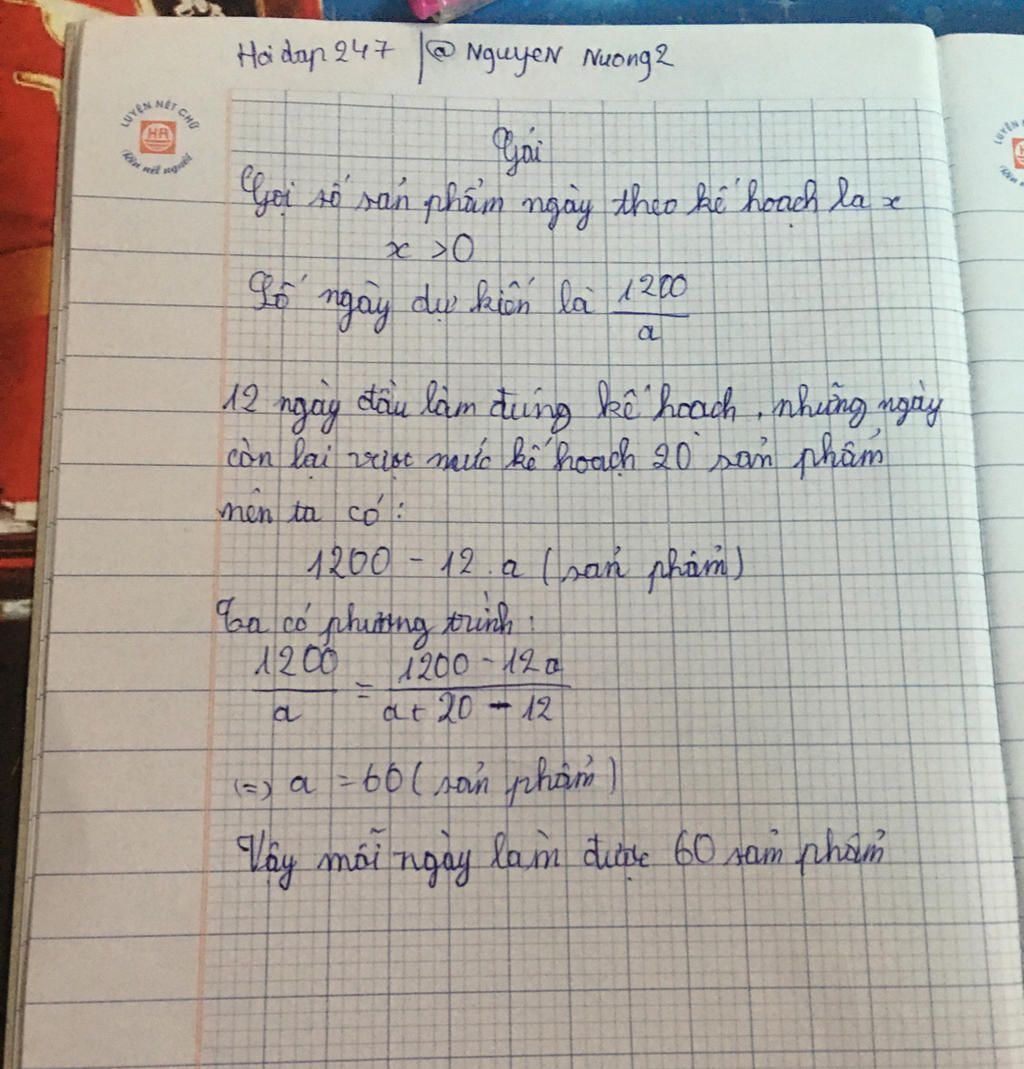 Hoi dap 247 | @ Nguyen Nuong2
LUYỆN NÉT CHỮ
HA
Rèn nết người
Gọi số sản phẩm ngày theo kế hoạch la x
x > 0
Số ngày dự kiến là 1200/a
12 ngày đầu làm đúng kế hoạch, những ngày
còn lại vượt mức kế hoạch 20 sản phẩm
nên ta có:
1200 - 12.a (sản phẩm)
Ta có phương trình:
1200/a = (1200 - 12a)/(a + 20 - 12)
(=) a = 60 (sản phẩm)
Vậy mỗi ngày làm được 60 sản phẩm